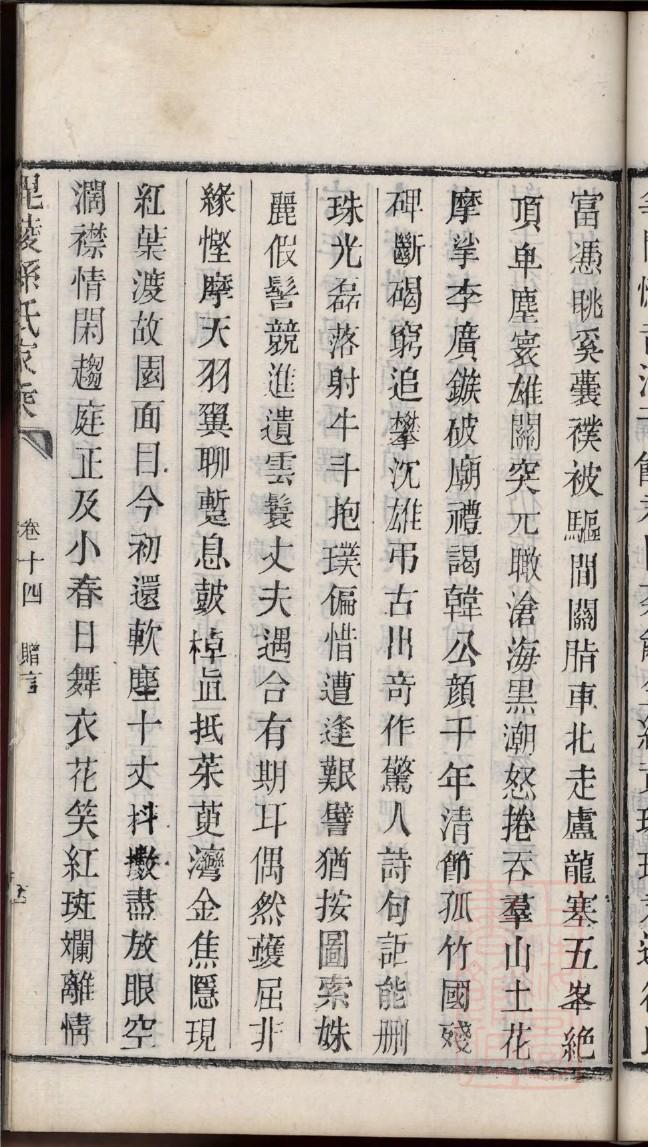 富憑眺奚囊襆被驅間關脂車北走盧龍塞五峯絶
頂卓塵寰雄關突兀瞰滄海黒潮怒捲吞羣山土花
摩挲李廣鏃破廟禮謁韓公顔千年清節孤竹國殘
碑斷碣窮追攀沈雄弔古出奇作驚人詩句詎能刪
珠光磊落射牛斗抱璞偏惜遭逢艱譬猶按圖索姝
麗假髻競進遺雲鬟丈夫遇合有期耳偶然蠖屈非
緣慳摩天羽翼聊蹔息鼓棹直抵茱萸灣金焦隱現
紅葉渡故園面目今初還軟塵十丈抖擻盡放眼空
濶襟情閑趨庭正及小春日舞衣花笑紅斑斕離情
毘陵孫氏家乘
卷十四 贈言